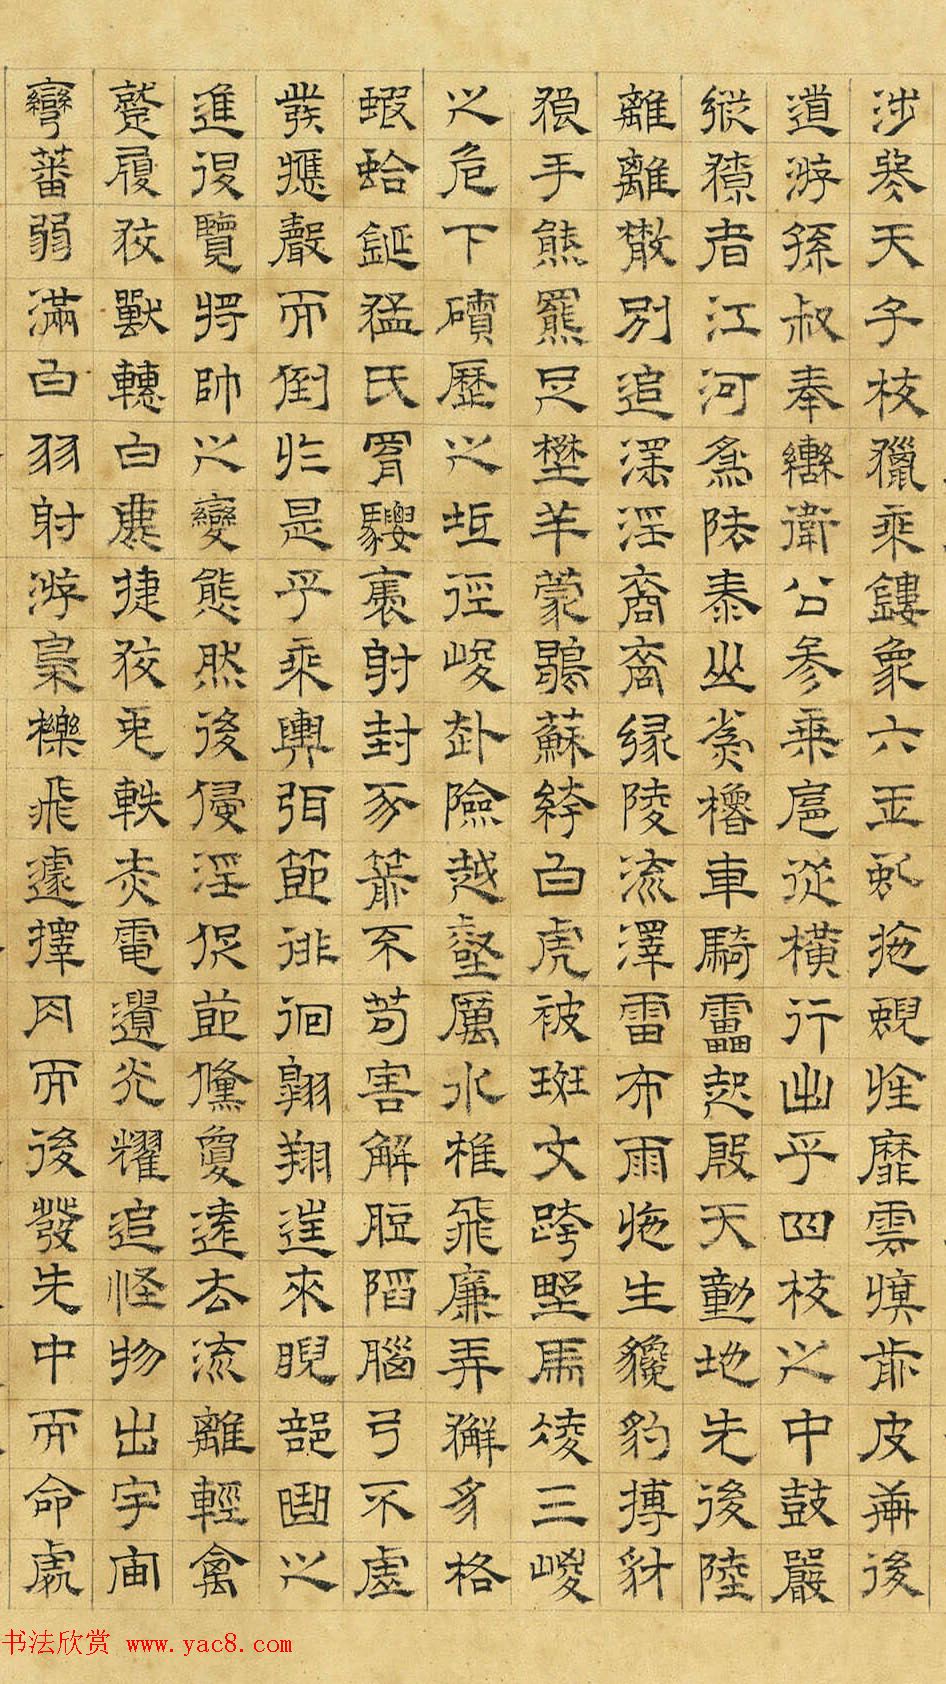 涉冬天子校獵乘鏤象六玉虯拖蜺旌靡雲旗前皮軒後
道游孫叔奉轡衛公參乘扈從橫行出乎四校之中鼓嚴
縱獠者江河為阹泰山為櫓車騎靁起殷天動地先後陸
離離散別追淫淫裔裔緣陵流澤雲布雨施生貔豹搏豺
狼手熊羆足壄羊蒙鶡蘇絝白虎被斑文跨壄馬凌三嵕
之危下磧歷之坻徑峻赴險越壑厲水椎飛廉弄獬豸格
蝦蛤鋋猛氏羂騕褭射封豕箭不苟害解脰陷腦弓不虛
發應聲而倒於是乎乘輿弭節徘徊翱翔往來睨部曲之
進退覽將帥之變態然後侵淫促節儵夐遠去流離輕禽
蹵履狡獸轊白鹿捷狡兔軼赤電遺光耀追怪物出宇宙
彎蕃弱滿白羽射游梟櫟飛遽擇肉而後發先中而命處
书法欣赏 www.yac8.com